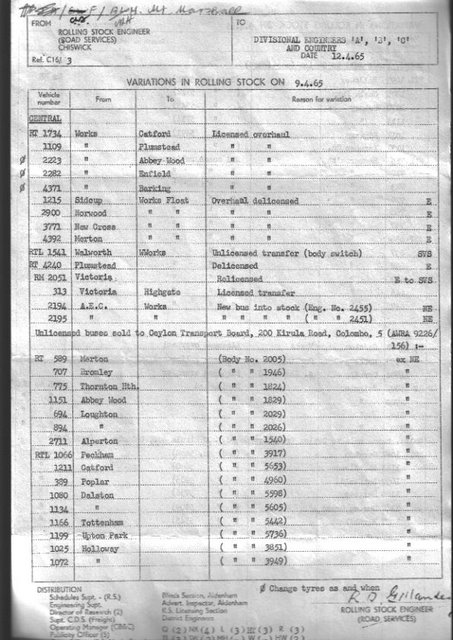 FROM
ROLLING STOCK ENGINEER
(ROAD SERVICES)
CHISWICK
Ref. C16/ 3
TO
DIVISIONAL ENGINEERS 'A', 'B', 'C'
AND COUNTRY
DATE 12.4.65
VARIATIONS IN ROLLING STOCK ON 9.4.65
Vehicle number From To Reason for variation
CENTRAL
RT 1734 Works Catford Licensed overhaul
1109 " Plumstead " "
Ø 2223 " Abbey Wood " "
Ø 2282 " Enfield " "
Ø 4371 " Barking " "
1215 Sidcup Works Float Overhaul delicensed E
2900 Norwood " " " " E
3771 New Cross " " " " E
4392 Merton " " " " E
RTL 1541 Walworth WWorks Unlicensed transfer (body switch) SVS
RT 4240 Plumstead Delicensed E
RM 2051 Victoria Relicensed E to SVS
313 Victoria Highgate Licensed transfer
2194 A.E.C. Works New bus into stock (Eng. No. 2455) NE
2195 " " " " " " ( " " 2451) NE
Unlicensed buses sold to Ceylon Transport Board, 200 Kirula Road, Colombo, 5 (AWRA 9226/
156) :-
RT 589 Merton (Body No. 2005) ex NE
707 Bromley ( " " 1946) "
775 Thornton Hth. ( " " 1824) "
1151 Abbey Wood ( " " 1829) "
694 Loughton ( " " 2029) "
894 " ( " " 2026) "
2711 Alperton ( " " 1540) "
RTL 1066 Peckham ( " " 3917) "
1211 Catford ( " " 5653) "
389 Poplar ( " " 4960) "
1080 Dalston ( " " 5598) "
1134 " ( " " 5605) "
1166 Tottenham ( " " 5442) "
1199 Upton Park ( " " 5736) "
1025 Holloway ( " " 3851) "
1072 " ( " " 3949) "
Ø Change tyres as and when
ROLLING STOCK ENGINEER
(ROAD SERVICES)
DISTRIBUTION
Schedules Supt. - (R.S.)
Engineering Supt.
Director of Research (2)
Supt. C.D.S. (Freight)
Operating Manager (CB&C)
Publicity Officer (3)
Blinds Section, Aldenham
Advert. Inspector, Aldenham
R.S. Licensing Section
District Engineers